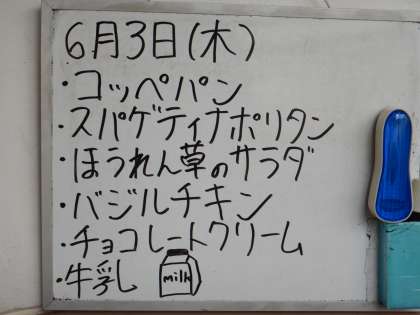 6月3日(木)
・コッペパン
・スパゲティナポリタン
・ほうれん草のサラダ
・バジルチキン
・チョコレートクリーム
・牛乳 milk